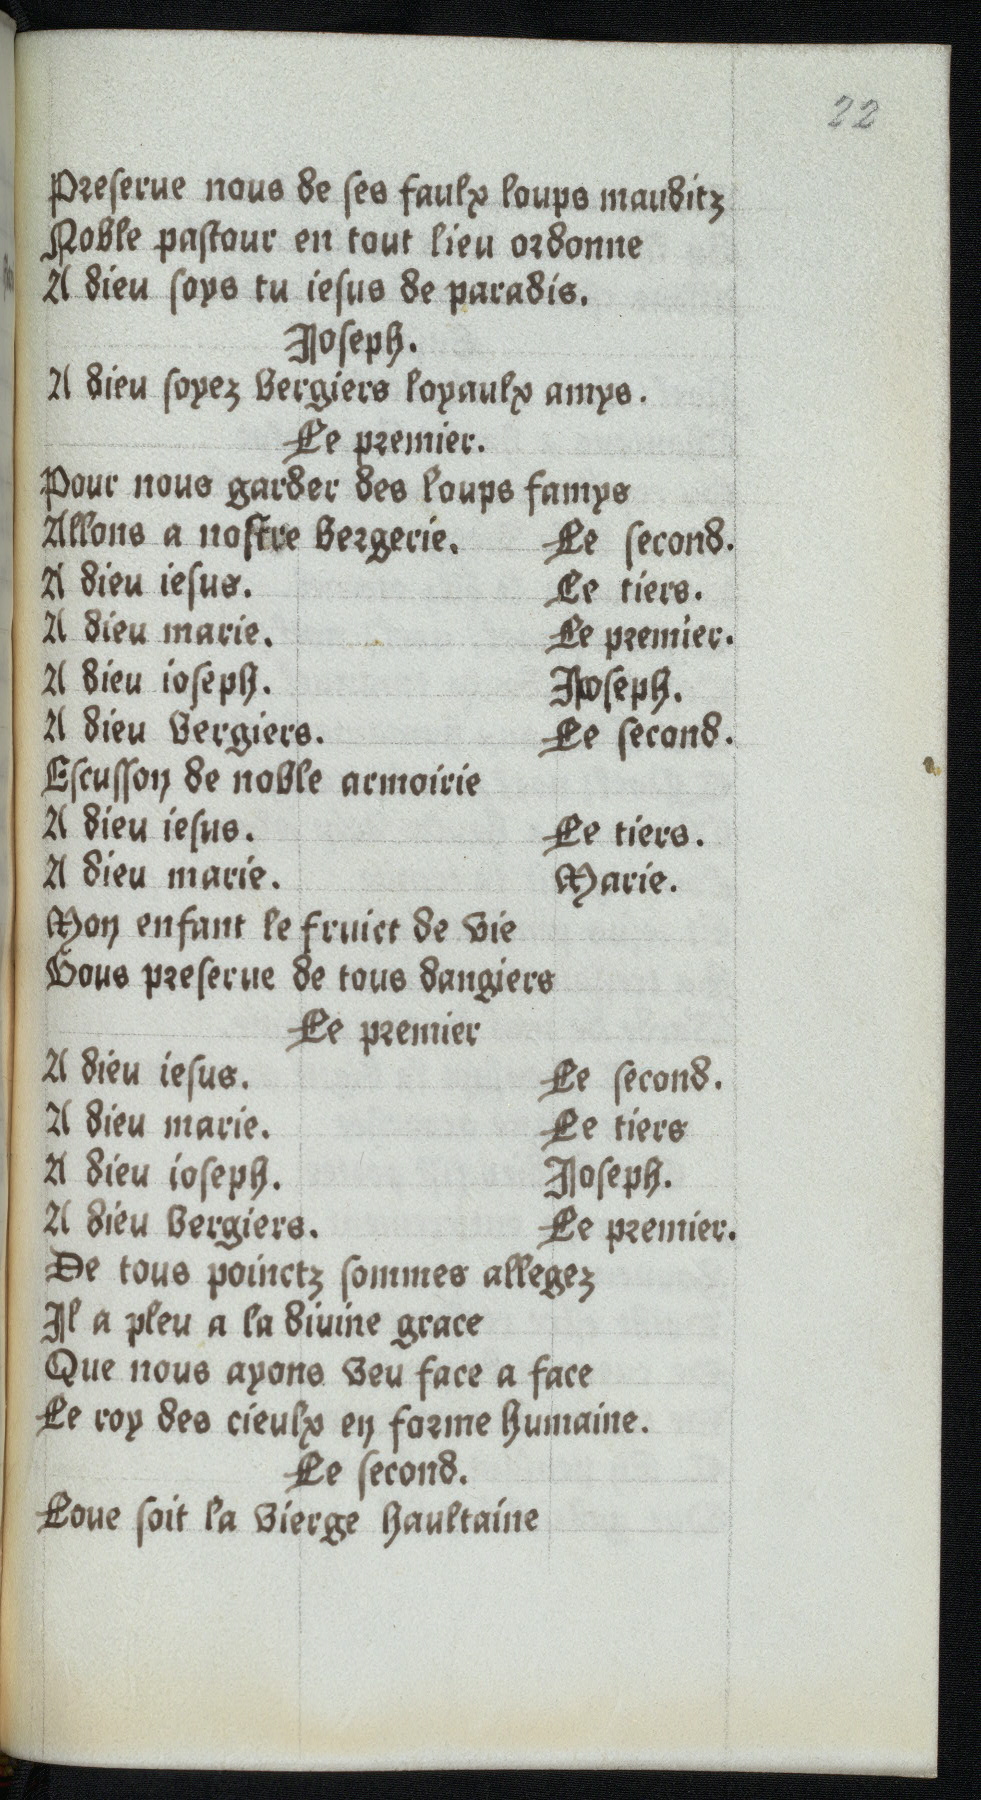 22
Preserue nous de ses faulx loups mauditz
Noble pastour en tout lieu ordonne
A dieu soys tu iesus de paradis.
Joseph.
A dieu soyez vergiers loyaulx amys.
Le premier.
Pour nous garder des loups famys
Allons a nostre bergerie. Le second.
A dieu iesus. Le tiers.
A dieu marie. Le premier.
A dieu ioseph. Joseph.
A dieu vergiers. Le second.
Escusson de noble armoirie
A dieu iesus. Le tiers.
A dieu marie. Marie.
Mon enfant le fruict de vie
Vous preserue de tous dangiers
Le premier
A dieu iesus. Le second.
A dieu marie. Le tiers
A dieu ioseph. Joseph.
A dieu vergiers. Le premier.
De tous poinctz sommes allegez
Il a pleu a la diuine grace
Que nous ayons veu face a face
Le roy des cieulx en forme humaine.
Le second.
Loue soit la vierge haultaine